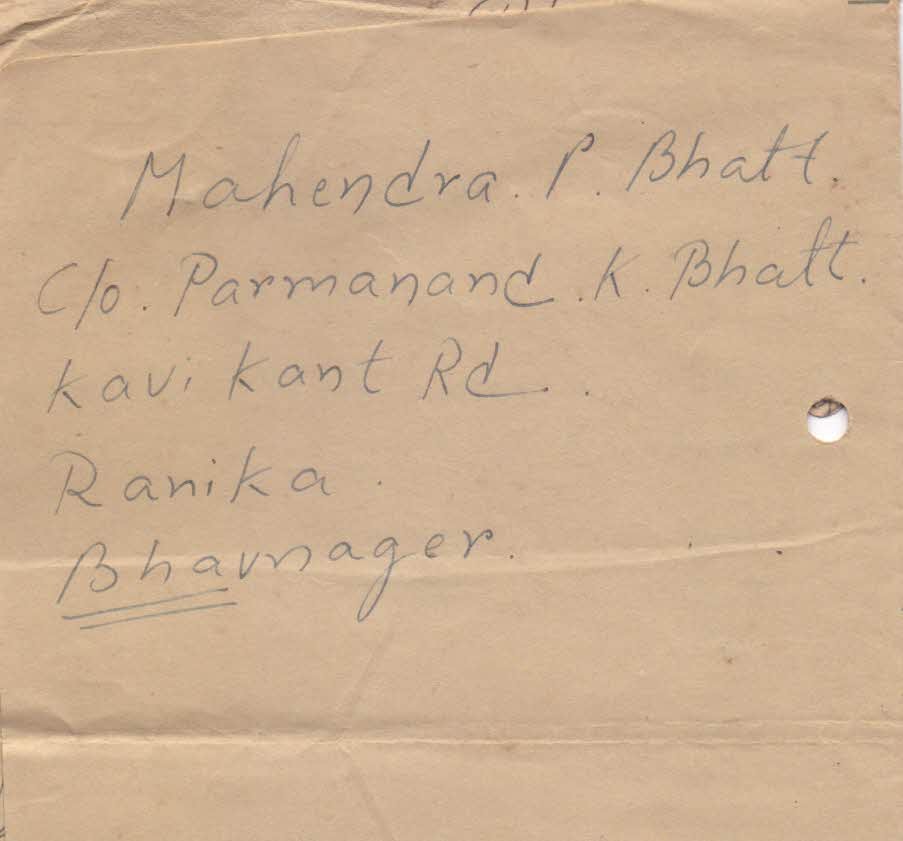 Mahendra. P. Bhatt.
C/o. Parmanand. K. Bhatt.
Kavi Kant Rd..
Ranika.
Bhavnager.